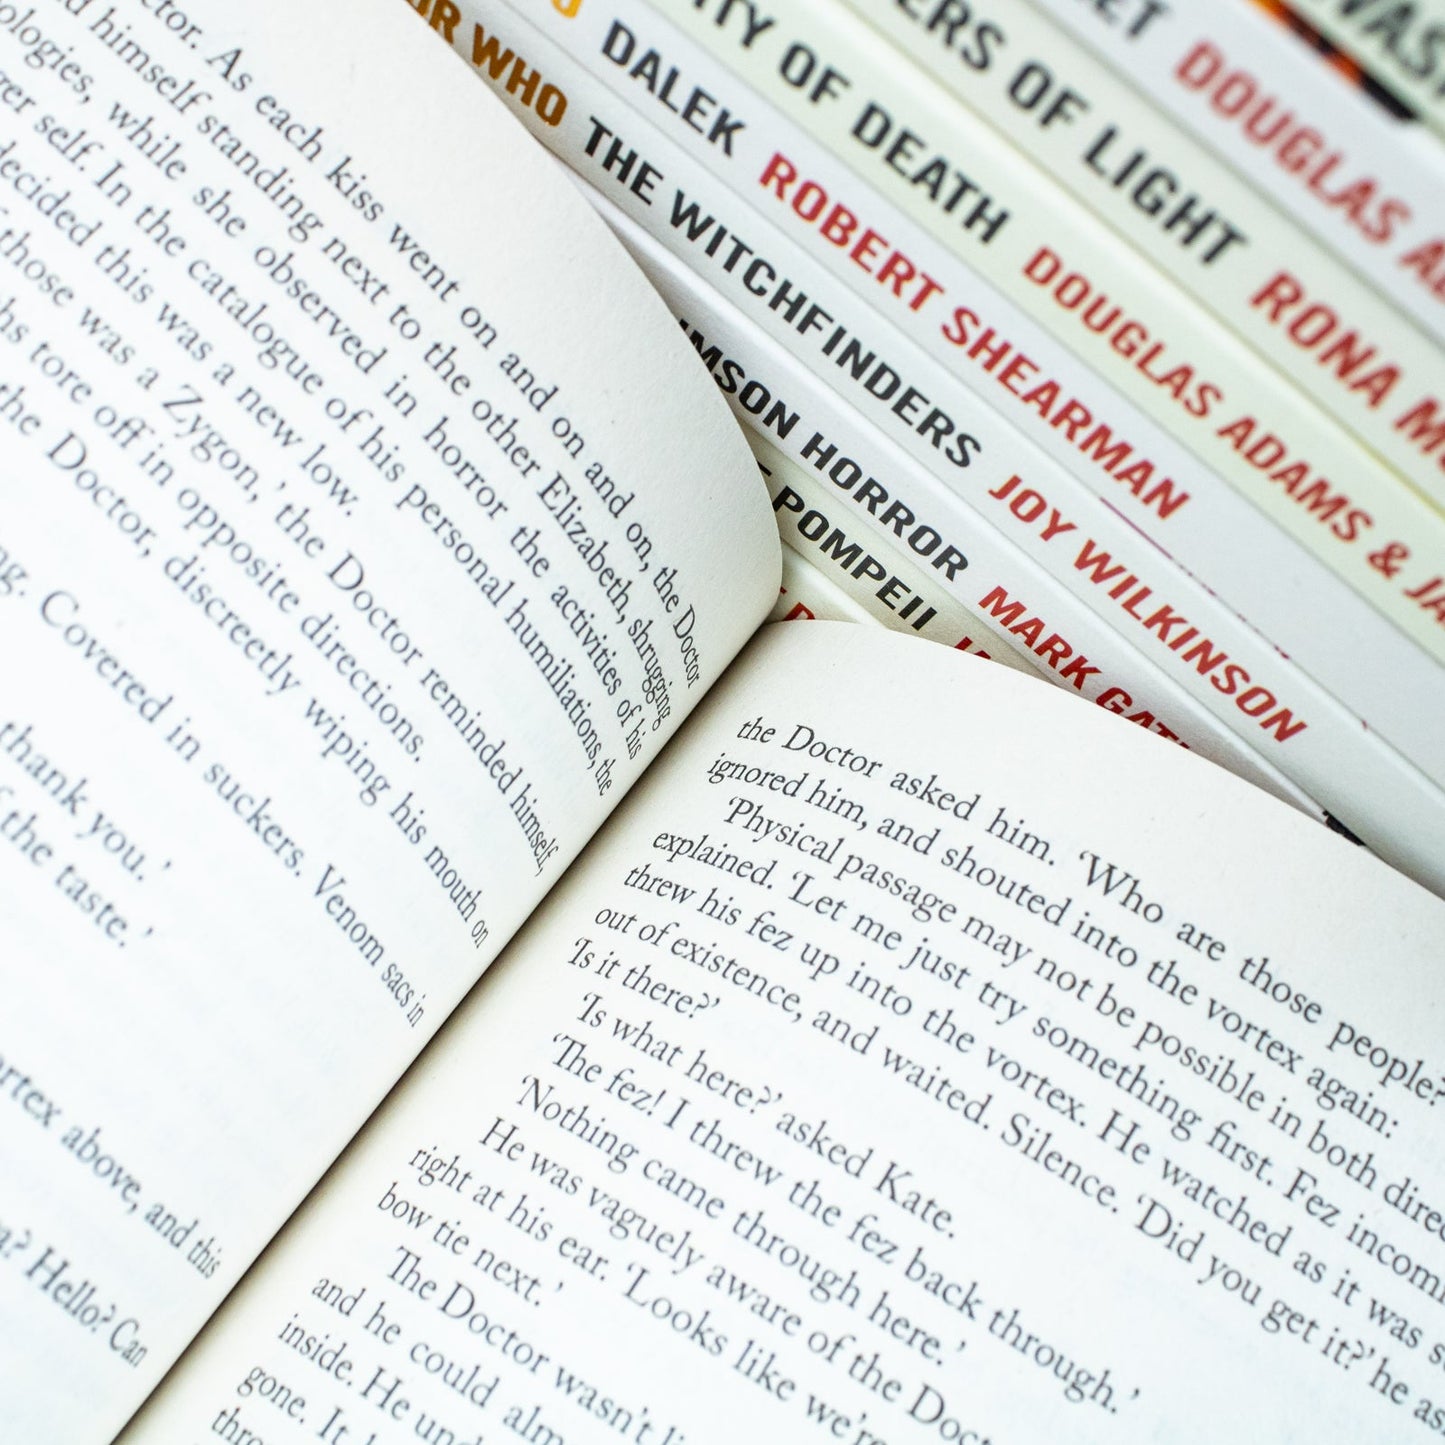 WHO THE WITCHFINDERS JOY WILKINSON
DALEK ROBERT SHEARMAN
OF DEATH DOUGLAS ADAMS &
OF LIGHT RONA
DOUGLAS
HORROR MARK
POMPEII
As each kiss went on and on and on, the Doctor
himself standing next to the other Elizabeth, shrugging
while she observed in horror the activities of his
self. In the catalogue of his personal humiliations, the
decided this was a new low.
those was a Zygon,' the Doctor reminded himself,
tore off in opposite directions.
the Doctor, discreetly wiping his mouth on
Covered in suckers. Venom sacs in
thank you.'
the taste.'
above, and this
Hello? Can
the Doctor asked him. 'Who are those people?'
ignored him, and shouted into the vortex again:
'Physical passage may not be possible in both
explained. 'Let me just try something first. Fez
threw his fez up into the vortex. He watched as it was
out of existence, and waited. Silence. 'Did you get it?' he
'Is it there?'
'Is what here?' asked Kate.
'The fez! I threw the fez back through.'
'Nothing came through here.'
He was vaguely aware of the
right at his ear. 'Looks like we're
bow tie next.'
The Doctor wasn't
and he could
inside. He
gone. It